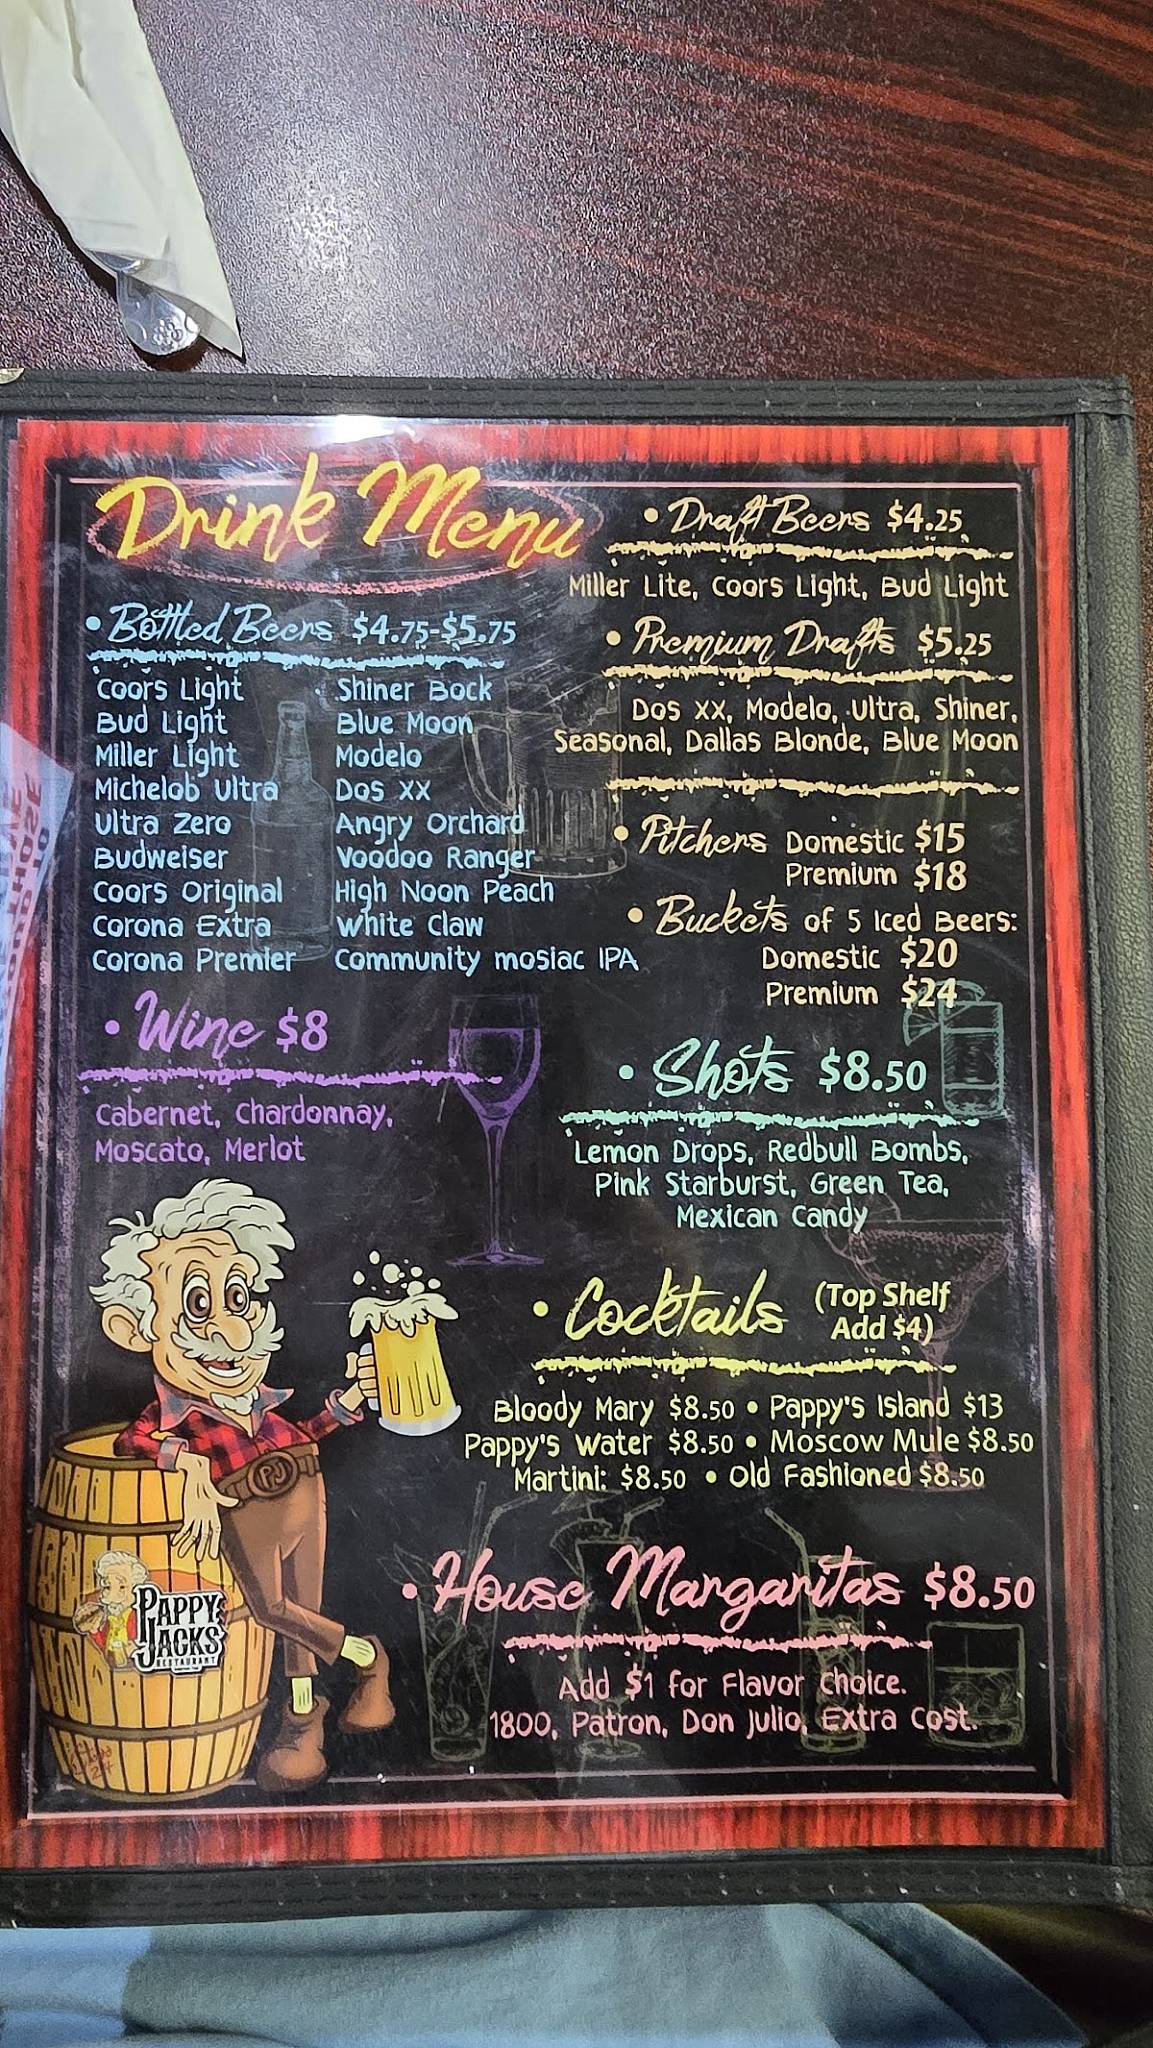 Drink Menu
• Bottled Beers $4.75-$5.75
Coors Light
Bud Light
Miller Light
Michelob Ultra
Ultra Zero
Budweiser
Coors Original
Corona Extra
Corona Premier
Shiner Bock
Blue Moon
Modelo
Dos XX
Angry Orchard
Voodoo Ranger
High Noon Peach
White Claw
Community mosiac IPA
• Wine $8
Cabernet, Chardonnay,
Moscato, Merlot
• Draft Beers $4.25
Miller Lite, Coors Light, Bud Light
• Premium Drafts $5.25
Dos XX, Modelo, Ultra, Shiner,
Seasonal, Dallas Blonde, Blue Moon
• Pitchers Domestic $15
Premium $18
• Buckets of 5 Iced Beers:
Domestic $20
Premium $24
• Shots $8.50
Lemon Drops, Redbull Bombs,
Pink Starburst, Green Tea,
Mexican Candy
• Cocktails (Top Shelf
Add $4)
Bloody Mary $8.50 • Pappy's Island $13
Pappy's Water $8.50 • Moscow Mule $8.50
Martini: $8.50 • Old Fashioned $8.50
• House Margaritas $8.50
Add $1 for Flavor Choice.
1800, Patron, Don Julio, Extra Cost.
PJ
PAPPY
JACKS
RESTAURANT